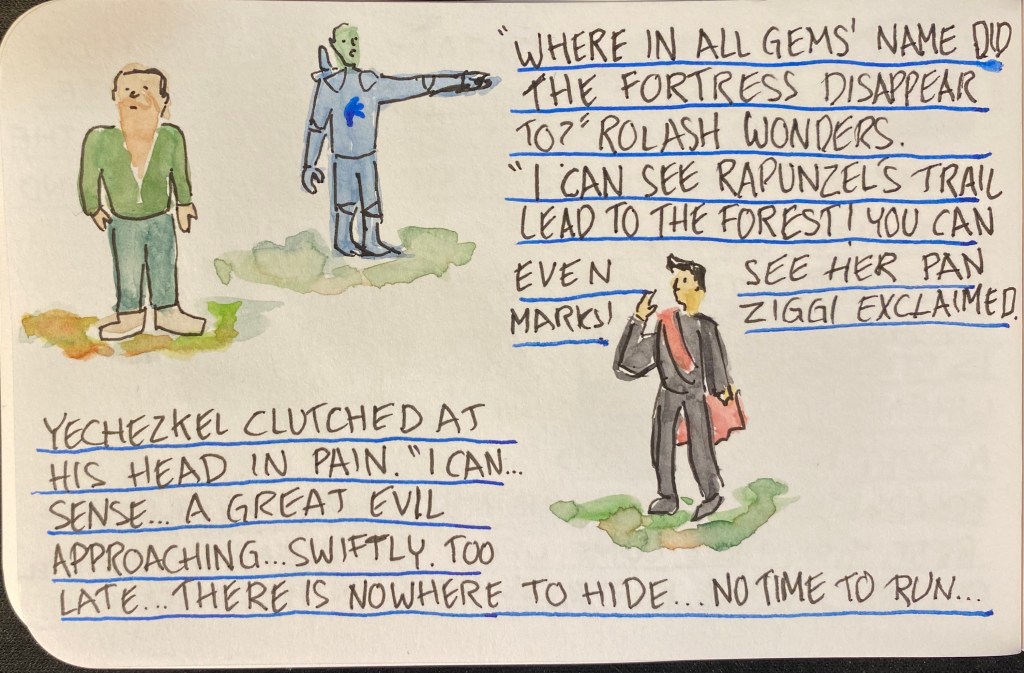 "WHERE IN ALL GEMS' NAME DID
THE FORTRESS DISAPPEAR
TO?" ROLASH WONDERS.
"I CAN SEE RAPUNZEL'S TRAIL
LEAD TO THE FOREST! YOU CAN
EVEN SEE HER PAN
MARKS! ZIGGI EXCLAIMED.
YECHEZKEL CLUTCHED AT
HIS HEAD IN PAIN. "I CAN...
SENSE... A GREAT EVIL
APPROACHING... SWIFTLY. TOO
LATE... THERE IS NOWHERE TO HIDE... NO TIME TO RUN...